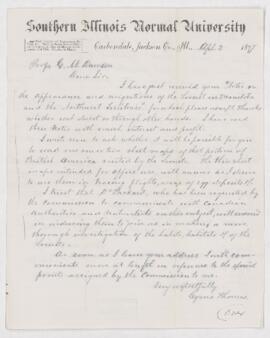 Southern Illinois Normal University
Carbondale, Jackson Co., Ill., Sept. 2 187
Prof. G. M. Dawson
Dear Sir
I have just received your "Notes on
the appearance and migrations of the Locust in Manitoba
and the Northwest Territories" for which please accept thanks
whether sent direct or through other hands. I have read
these Notes with much interest and profit.
I write now to ask whether it will be possible for you
to send me an outline sketch map of that portion of
British America visited by the Locust. The
intended for
I trust that Dr. Packard, who has been requested by
the Commission to communicate with Canadian
Authorities and
in inducing them to join us in making a more
thorough investigation of the habits, habitats &c of the
Locusts.
As soon as I learn your address I will com-
municate more at length in reference to the special
points assigned by the Commission to me.
Very respectfully
Cyrus Thomas